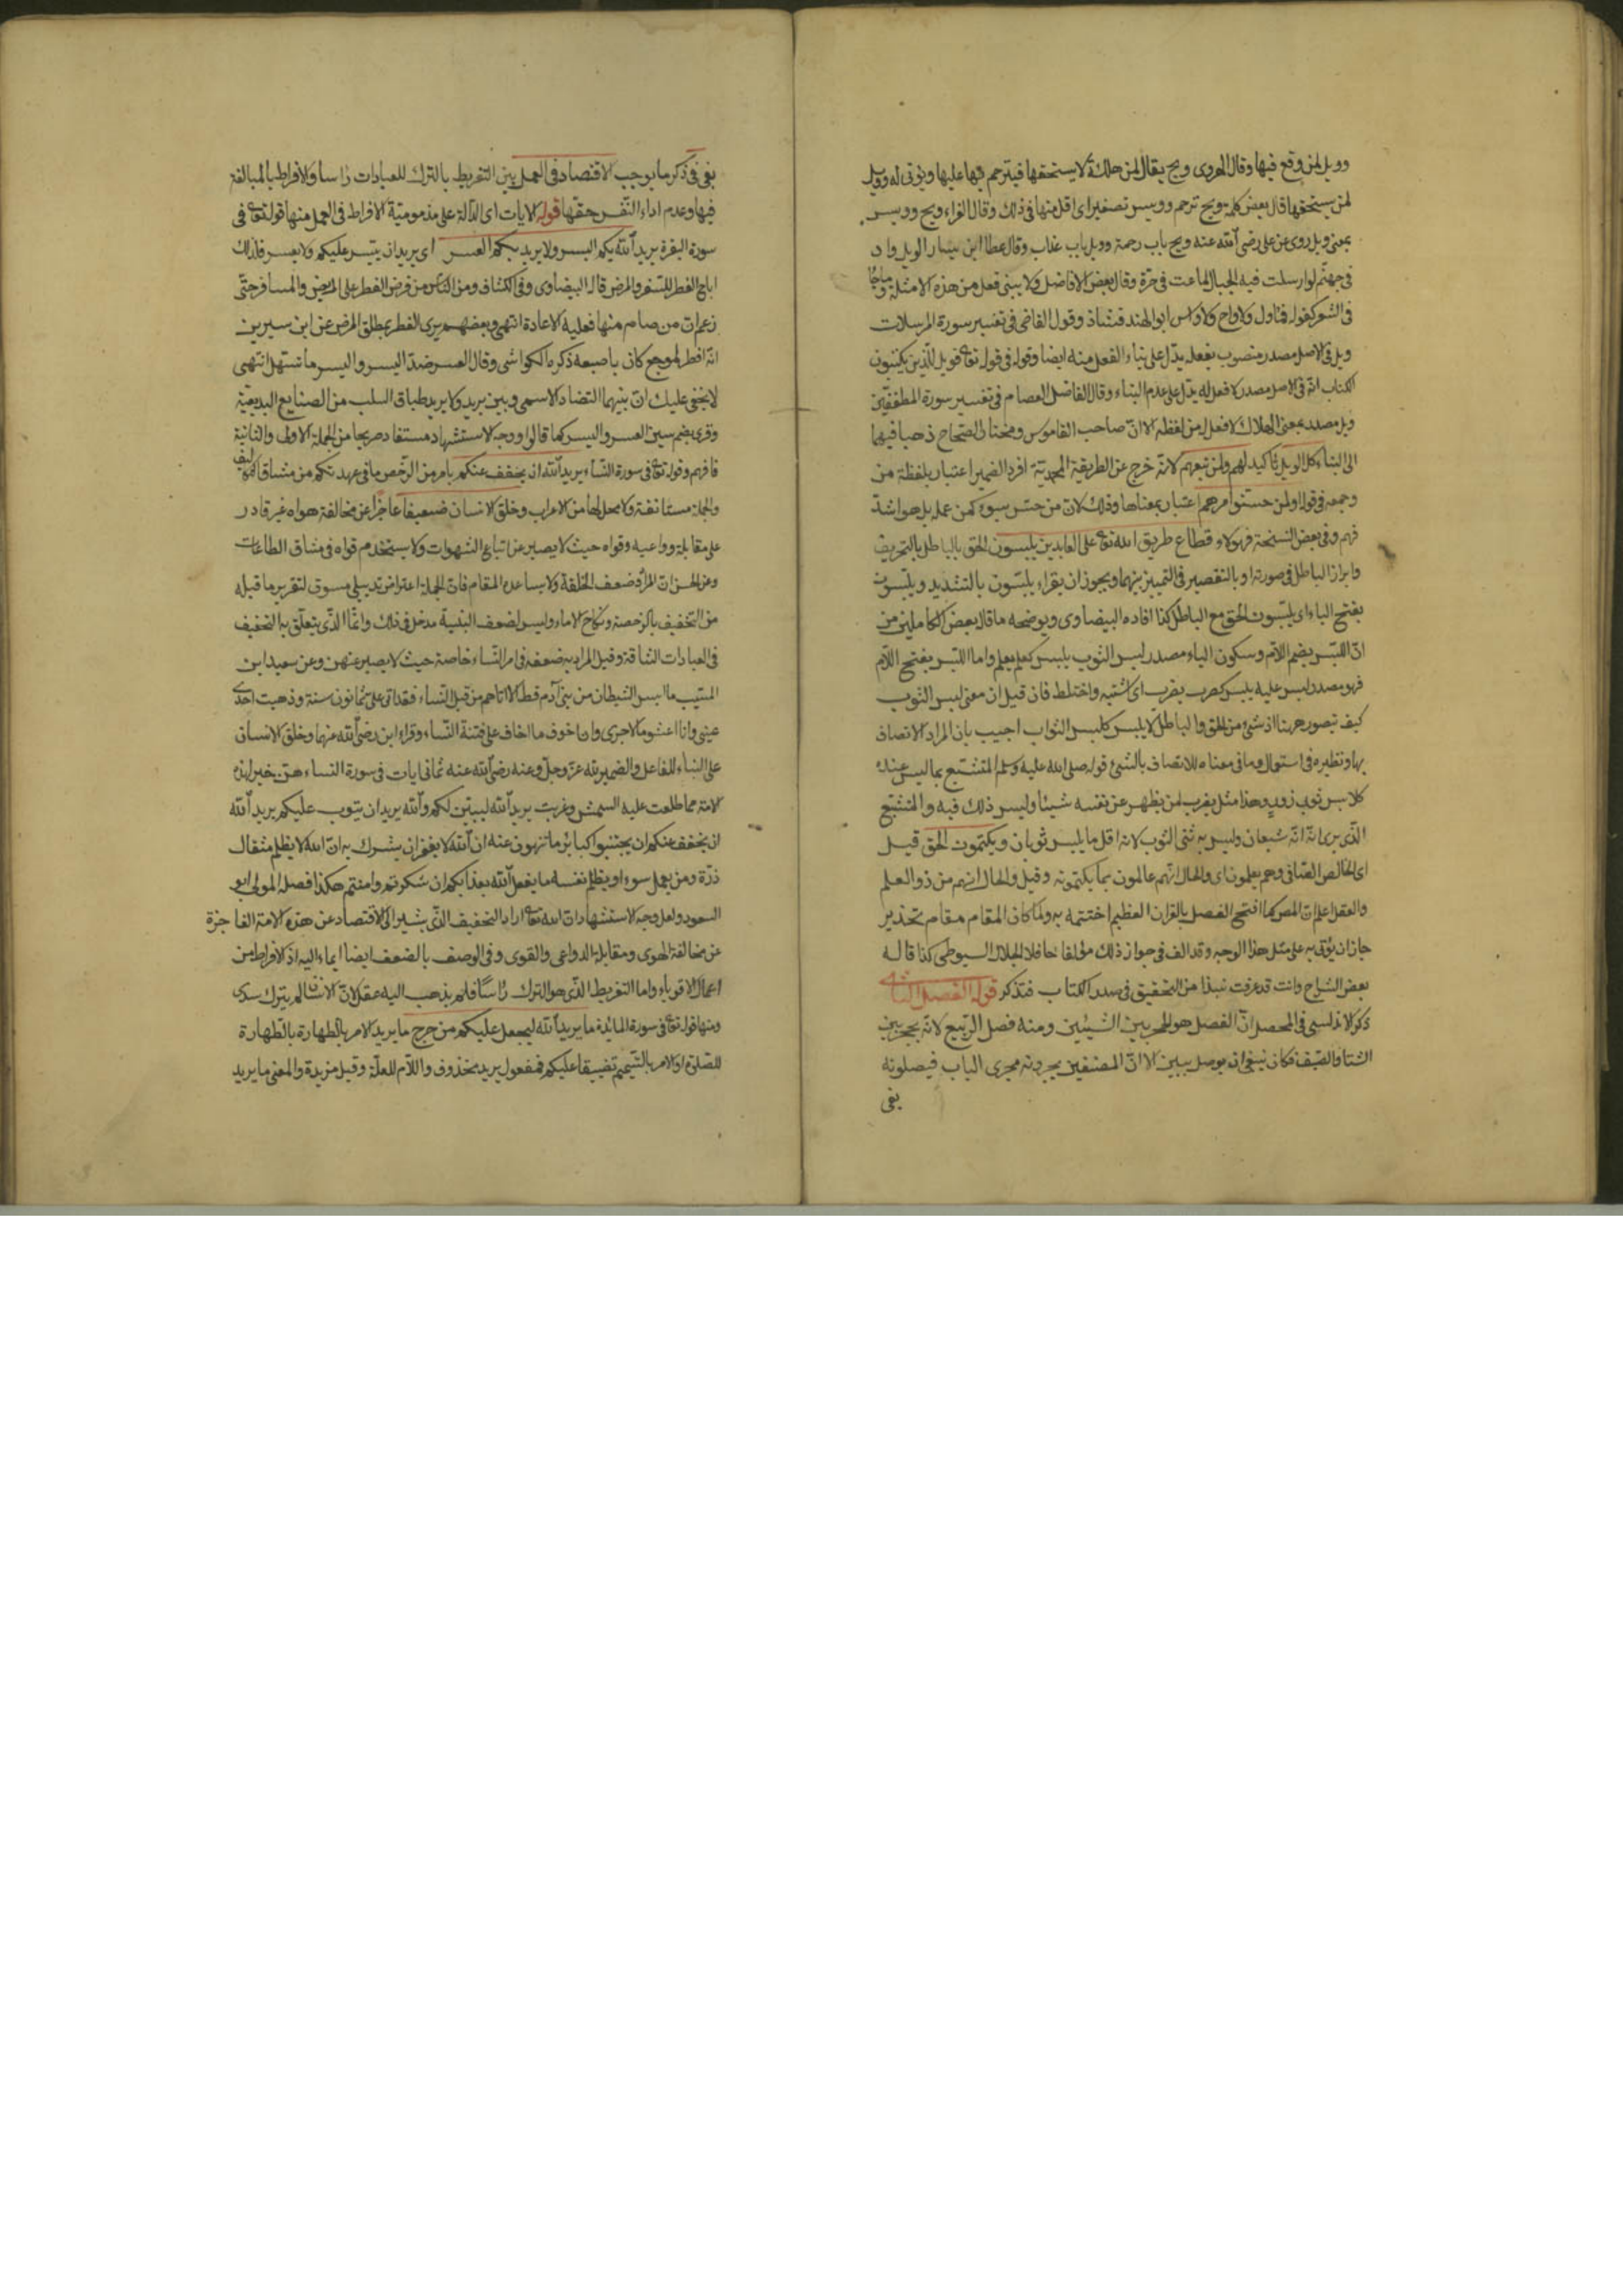 وويل لمن وقع فيها وقال الهروى ويح يقال لمن هلكة لا يستحقها فيترحم فيها عليها ويؤتى له وويل
لمن يستحقها قال بعض كلمة ويح ترحم وويس تصغيرا اى اقل منها فى ذلك وقال الفراء ويح وويس
بمعنى ويل روى عن على رضى الله عنه ويح باب رحمة وويل باب عذاب وقال عطا ابن يسار الويل واد
فى جهنم لو ارسلت فيه الجبال لماعت فى حرّة وقال بعض الافاضل ولا يبنى فعل من هذه الامثلة وما جا
فى الشعر كقوله فما ول ولا واح ولا واس ابو الهند فشاذ وقول القاضى فى تفسير سورة المرسلات
ويل فى الاصل مصدر منصوب بفعله يدل على بناء الفعل منه ايضا وقوله فى قوله تع فويل للذين يكتبون
الكتاب انه فى الاصل مصدر لا فعل له يدل على عدم البناء وقال الفاضل العصام فى تفسير سورة المطففين
ويل مصدر بمعنى الهلاك لا فعل له من لفظه الا انّ صاحب القاموس ومختار الصحاح ذهبا فيهما
الى البناء كل الويل تأكيد لهم ولمن تبعهم لانه خرج عن الطريقة المحمدية افرد الضمير اعتبار بلفظة من
وجمعه فى قوله او لمن حسنوا امرهم اعتبار بمعناها وذلك لان من حسّن سوء كمن عمله بل هو اشد
فهم وفى بعض النسخة فهؤلاء قطاع طريق الله تع على العابدين يلبسون الحق بالباطل بالتحريف
وابراز الباطل فى صورته او بالتقصير فى التمييز بينهما ويجوز ان يقراء يلبّسون بالتشديد ويلبسون
بفتح الباء اى يلبسون الحق مع الباطل كذا افاده البيضاوى ويوضحه ما قال بعض الكاملين من
انّ اللبس بضم اللام وسكون الباء مصدر لبس الثوب يلبس كعلم يعلم واما اللبس بفتح اللام
فهو مصدر لبس عليه يلبس كضرب يضرب اى اشتبه واختلط فان قيل ان معنى لبس الثوب
كيف تصور ههنا اذ شئ من الحق والباطل لا يلبس كلبس الثواب اجيب بان المراد الاتصاف
بها ونظيره فى استعمال وما فى معناه للاتصاف بالشئ قوله صلى الله عليه وسلم المتشبع بما ليس عنده
كلابس ثوب زور وهذا مثل يضرب لمن يظهر عن نفسه شيئا وليس ذلك فيه والمتشبع
الذى يرى انه انّه شبعان وليس به ثنى الثوب لانه اقل ما يلبس ثوبان ويكتمون الحق قيل
اى الخالص الصافى وهم يعلمون اى والحال انهم عالمون بما يكتمونه وقيل والحال انهم من ذو العلم
والعقل اعلم ان المص كما افتتح الفصل بالقران العظيم اختتمه به ولما كان المقام مقام تحذير
جاز ان يؤتى به على مثل هذا الوجه وقد الف فى جواز ذلك مؤلفا حافلا الجلال السيوطى كذا قاله
بعض الشراح وانت قد عرفت نبذا من التحقيق فى صدر الكتاب فتذكر قوله الفصل الثانى
ذكر الاندلسى فى المحصل انّ الفصل هو الحجر بين الشيئين ومنه فصل الربيع لانه يحجر بين
الشتا والصيف فكان ينبغى ان يوصل ببين الا انّ المصنفين يجرونه مجرى الباب فيصلونه
بفى
بفى فى ذكر ما يوجب الاقتصاد فى العمل بين التفريط بالترك للعبادات رأسا والافراط بالمبالغة
فيها وعدم اداء النفس حقها قوله الايات اى الدالة على مذمومية الافراط فى العمل منها قوله تع فى
سورة البقرة يريد الله بكم اليسر ولا يريد بكم العسر اى يريد ان ييسر عليكم ولا يعسر فلذلك
اباح الفطر للسفر والمرض قاله البيضاوى وفى الكشاف ومن الناس من فرض الفطر على المريض والمسافر حتى
زعم ان من صام منها فعليه الاعادة انتهى وبعضهم يرى الفطر بمطلق المرض عن ابن سيرين
انه افطر لموجع كان باصبعه ذكره الكواشى وقال العسر ضدّ اليسر واليسر ما تسهل انتهى
لا يخفى عليك ان بينهما التضاد الاسمى وبين يريد ولا يريد طباق السلب من الصنايع البديعية
وقرئ بضم سين العسر واليسر كما قالوا ووجه الاستشهاد مستفاد صريحا من الجملة الاولى والثانية
فافهم وقوله تع فى سورة النساء يريد الله ان يخفف عنكم بامر من الرخص ما فى عهدتكم من مشاق التكاليف
والجملة مستانفة ولا محل لها من الاعراب وخلق الانسان ضعيفا عاجزا عن مخالفة هواه غير قادر
على مقابلة دواعيه وقواه حيث لا يصبر عن اتباع الشهوات ولا يستخدم قواه فى مشاق الطاعات
وعن الحسن ان المراد ضعف الخلقة ولا يساعده المقام فان الجملة اعتراض تذييلى مسوق لتقرير ما قبله
من التخفيف بالرخصة ونكاح الاماء وليس لضعف البنية مدخل فى ذلك وانما الذى يتعلق به التخفيف
فى العبادات الشاقة وقيل المراد به ضعفه فى امر النساء خاصة حيث لا يصبر عنهن وعن سعيد ابن
المسيب ما ايس الشيطان من بنى آدم قط الا اتاهم من قبل النساء فقد اتى على ثمانون سنة وذهبت احدى
عينى وانا اعشو بالاخرى وان اخوف ما اخاف على فتنة النساء وقراء ابن رضى الله عنهما وخلق الانسان
على البناء للفاعل والضمير لله عزّ وجلّ وعنه رضى الله عنه ثمانى ايات فى سورة النساء هنّ خير لهذه
الامة مما طلعت عليه الشمس وغربت يريد الله ليبين لكم والله يريد ان يتوب عليكم يريد الله
ان يخفف عنكم ان يجتنبوا كبائر ما تنهون عنه ان الله لا يغفر ان يشرك به انّ الله لا يظلم مثقال
ذرّة ومن يعمل سوءا او يظلم نفسه ما يفعل الله بعذابكم ان شكرتم وامنتم هكذا فصله المولى ابو
السعود ولعل وجه الاستشهاد ان الله تع اراد التخفيف الذى يشير الى الاقتصاد عن هذه الامة العاجزة
عن مخالفة الهوى ومقابلة الدواعى والقوى وفى الوصف بالضعف ايضا ايماء اليه اذ الافراط من
اعمال الاقوياء واما التفريط الذى هو الترك رأسا فلم يذهب اليه عقل لانّ الانسان لم يترك سدى
ومنها قوله تع فى سورة المائدة ما يريد الله ليجعل عليكم من حرج ما يريد الامر بالطهارة بالطهارة
للصلوة او الامر بالتيمم تضييقا عليكم فمفعول يريد محذوف واللام للعلة وقيل مزيدة والمعنى ما يريد